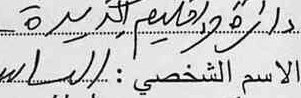 دائرة واقليم الجديدة
الاسم الشخصي : الياس